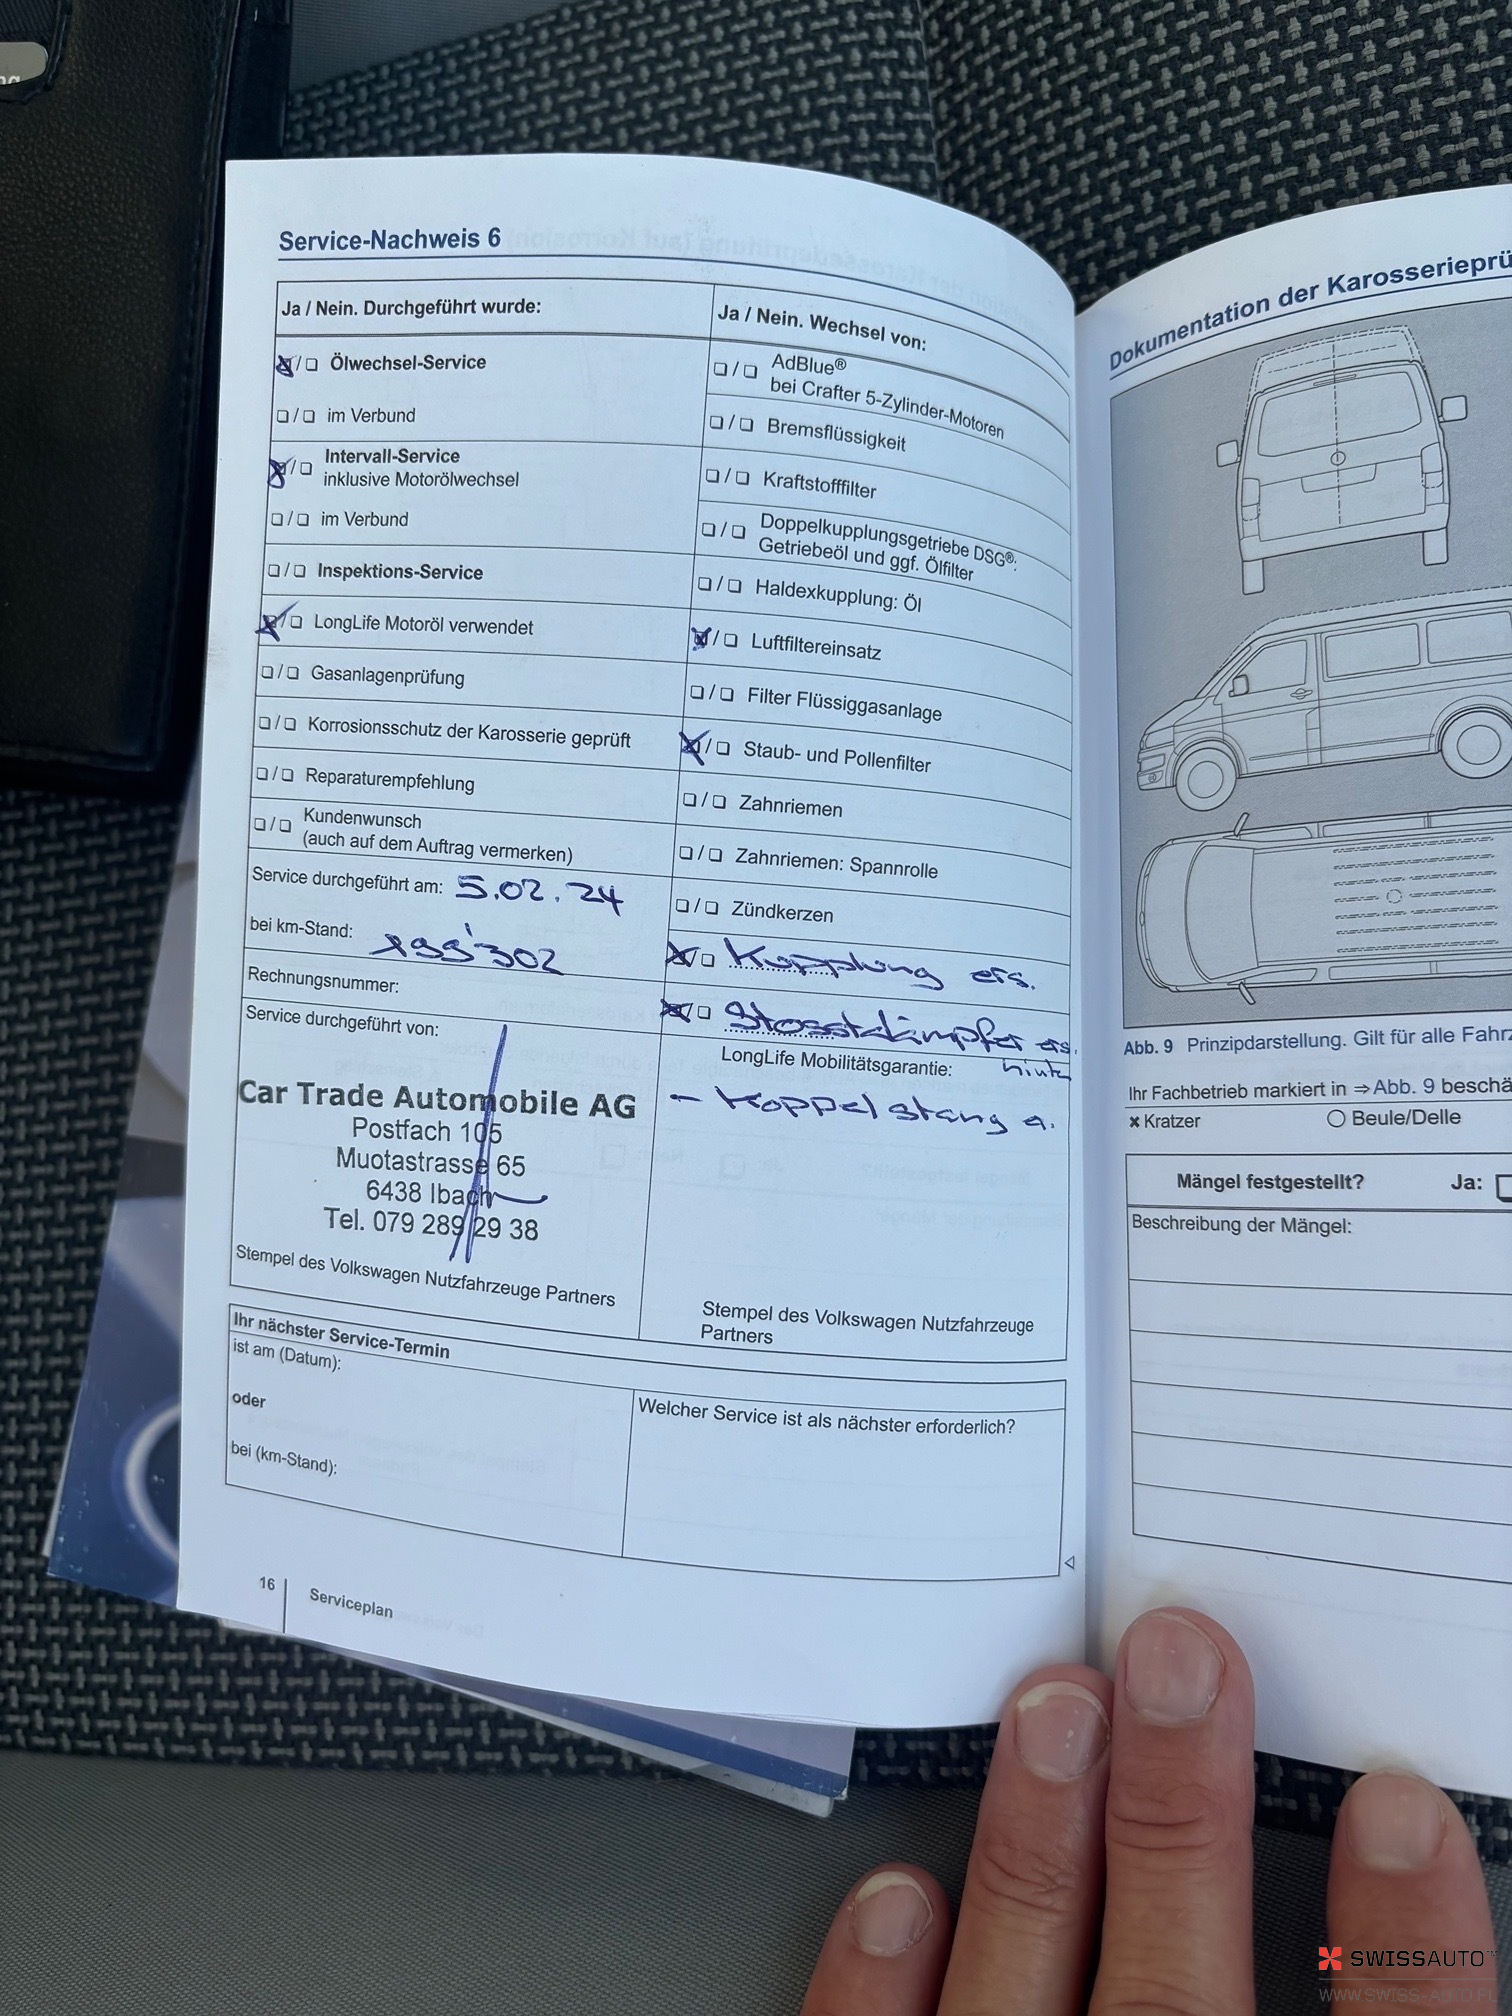 Service-Nachweis 6
Ja / Nein. Durchgeführt wurde:
Ölwechsel-Service
im Verbund
Intervall-Service
inklusive Motorölwechsel
im Verbund
Inspektions-Service
LongLife Motoröl verwendet
Gasanlagenprüfung
Korrosionsschutz der Karosserie geprüft
Reparaturempfehlung
Kundenwunsch
(auch auf dem Auftrag vermerken)
Service durchgeführt am: 5.02.24
bei km-Stand: 199'302
Rechnungsnummer:
Service durchgeführt von:
Car Trade Automobile AG
Postfach 105
Muotastrasse 65
6438 Ibach
Tel. 079 289 29 38
Stempel des Volkswagen Nutzfahrzeuge Partners
Ja / Nein. Wechsel von:
AdBlue®
bei Crafter 5-Zylinder-Motoren
Bremsflüssigkeit
Kraftstofffilter
Doppelkupplungsgetriebe DSG®:
Getriebeöl und ggf. Ölfilter
Haldexkupplung: Öl
Luftfiltereinsatz
Filter Flüssiggasanlage
Staub- und Pollenfilter
Zahnriemen
Zahnriemen: Spannrolle
Zündkerzen
Kupplung ers.
Stosstdämpfer ers.
hinten
LongLife Mobilitätsgarantie:
- Koppelstang a.
Stempel des Volkswagen Nutzfahrzeuge
Partners
Ihr nächster Service-Termin
ist am (Datum):
oder
bei (km-Stand):
Welcher Service ist als nächster erforderlich?
16
Serviceplan
Dokumentation der Karosserieprü
Abb. 9 Prinzipdarstellung. Gilt für alle Fahrz
Ihr Fachbetrieb markiert in ⇒ Abb. 9 beschä
× Kratzer
○ Beule/Delle
Mängel festgestellt?
Ja:
Beschreibung der Mängel:
SWISSAUTO
WWW.SWISS-AUTO.PL